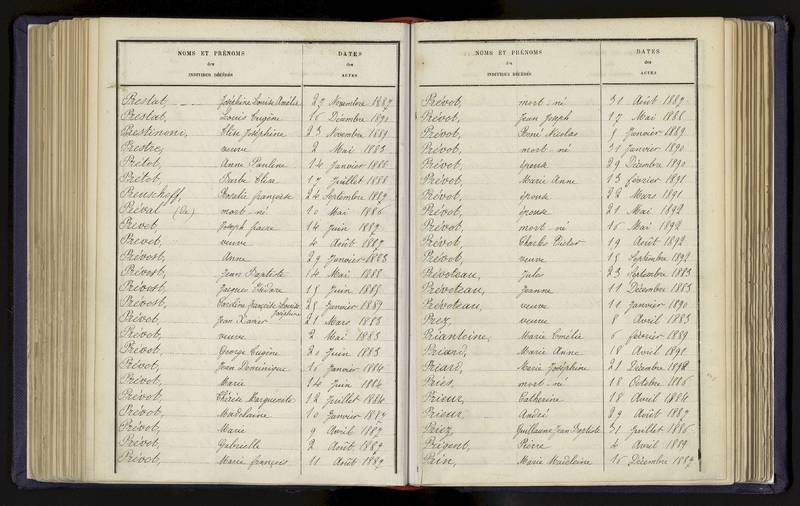 NOMS ET PRÉNOMS
des
INDIVIDUS DÉCÉDÉS
DATES
des
ACTES
Prestat, Joséphine Louise Amélie 29 Novembre 1887
Prestat, Louis Eugène 16 Décembre 1890
Prestinoni, Elise Joséphine 23 Novembre 1889
veuve 2 Mai 1883
Prétot, Anne Pauline 14 Janvier 1888
Prétot, Barbe Elise 17 Juillet 1888
Preuschoff, Rosalie françoise 24 Septembre 1889
Préval (De) mort-né 10 Mai 1886
Prevet, Joseph 14 Juin 1889
Prevet, veuve 4 Août 1887
Prévost, Anne 29 Janvier 1883
Prévost, Jean Baptiste 14 Mai 1888
Prévost, Jacques Isidore 15 Juin 1888
Prévost, Caroline françoise Louise Joséphine 25 Janvier 1889
Prévot, Jean Xavier 21 Mars 1883
Prévot, veuve 2 Mai 1883
Prévot, George Eugène 20 Juin 1883
Prévot, Jean Dominique 16 Janvier 1884
Prévot, Marie 14 Juin 1884
Prévot, Thérèse Marguerite 12 Juillet 1884
Prévot, Madeleine 10 Janvier
Prévot, Marie 9 Avril 1887
Prévot, Gabrielle 2 Août 1887
Prévot, Marie françois 11 Août 1887
NOMS ET PRÉNOMS
des
INDIVIDUS DÉCÉDÉS
DATES
des
ACTES
Prévot, mort-né 31 Août 1887
Prévot, Jean Joseph 17 Mai 1888
Prévot, René Nicolas 9 Janvier 1889
Prévot, mort-né 31 Janvier 1890
Prévot, épouse 29 Décembre 1890
Prévot, Marie Anne 13 février 1891
Prévot, épouse 22 Mars 1891
Prévot, épouse 21 Mai 1892
Prévot, mort-né 16 Mai 1892
Prévot, Charles Victor 19 Août 1892
Prévot, veuve 15 Septembre 1892
Prévoteau, Jules 23 Septembre 1883
Prévoteau, Jeanne 11 Décembre 1883
Prévoteau, veuve 11 Janvier 1890
Prez, veuve 8 Avril 1883
Prianteine, Marie Emélie 6 février 1889
Priard, Marie Anne 18 Avril 1891
Priard, Marie Joséphine 21 Décembre 1892
Priès, mort-né 18 Octobre 1886
Prieur, Catherine 18 Avril 1884
Prieur, André 29 Août 1887
Priez, Guillaume Jean Baptiste 31 Juillet 1886
Prigent, Pierre 4 Avril 1889
Prin, Marie Madeleine 16 Décembre 1887